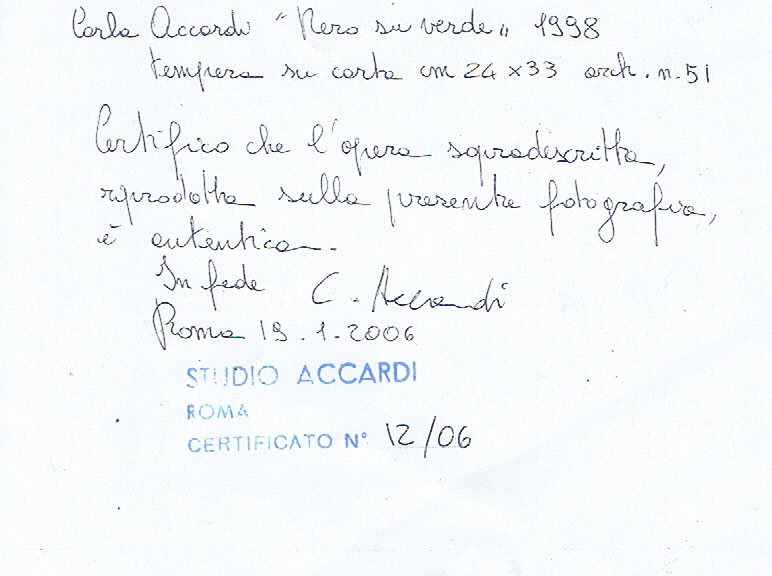 Carla Accardi "Nero su verde" 1998
tempera su carta cm 24 x 33 arch. n. 51
Certifico che l'opera sopradescritta,
riprodotta sulla presente fotografia,
è autentica.
In fede C. Accardi
Roma 19.1.2006
STUDIO ACCARDI
ROMA
CERTIFICATO N° 12/06